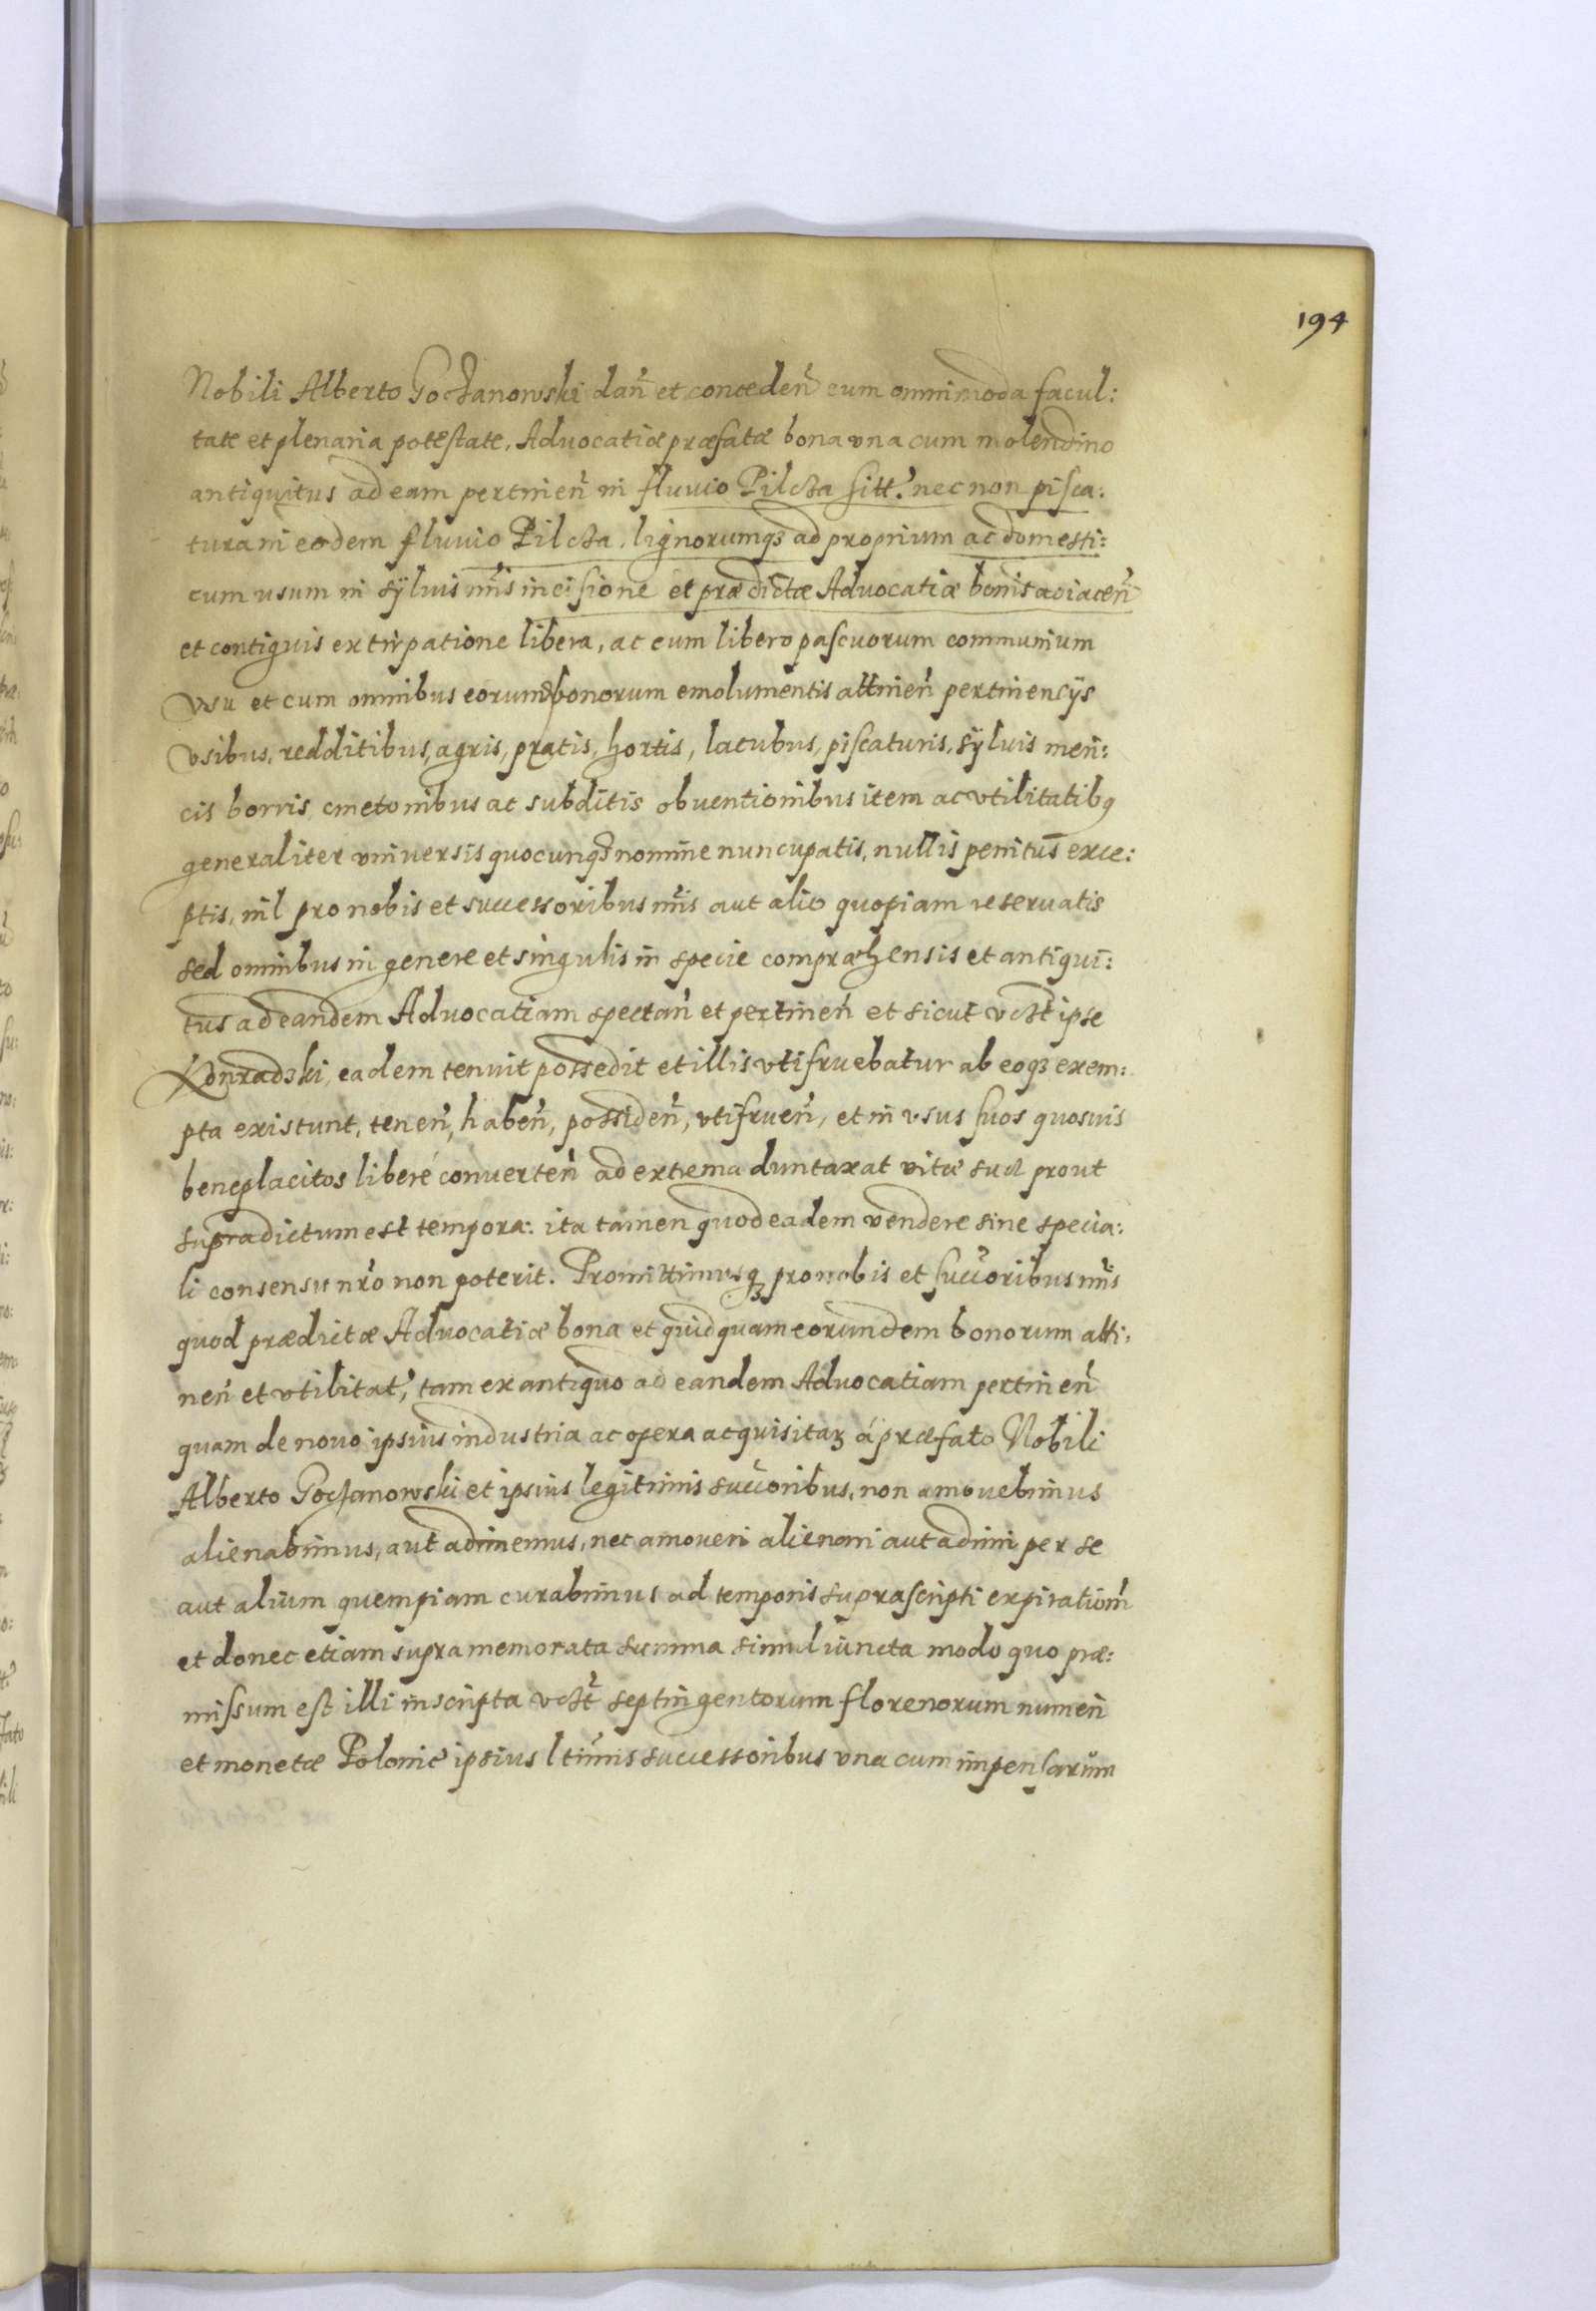 194
Nobili Alberto Goczanowski dań et conceden̄ cum omnimoda facul:
tate et plenaria potestate, Advocatiæ præfatæ bona vna cum molendino
antiquitus ad eam pertinen̄ in fluvio Pilcza sitt. nec non pisca:
tura in eodem fluvio Pilcza, lignorumqȝ ad proprium ac domesti:
cum usum in sÿluis nr̄is incisione et prædictæ Advocatiæ bonis adiacen̄
et contiguis extirpatione libera, ac cum libero pascuorum communium
Vsu et cum omnibus eorum bonorum emolumentis attinen̄ pertinencÿs
Vsibus, redditibus, agris, pratis, hortis, lacubus, piscaturis, sÿluis meri:
cis borris, cmetonibus ac subditis obuentionibus item ac vtilitatibq
generaliter vniversis quocunqȝ nomine nuncupatis, nullis penitus exce:
ptis, nil pro nobis et successoribus nr̄is aut alio quopiam reseruatis
sed omnibus in genere et singulis in specie compræhensis et antiqui:
tus ad eandem Advocatiam spectań et pertineń et sicut vczt ipse
Konradski, eadem tenuit possedit et illis vtifruebatur ab eoqȝ exem:
pta existunt, tenen̄, haben̄, possiden̄, vtifruen̄, et in vsus suos quosvis
beneplacitos liberé converten̄ ad extrema duntaxat vitæ suæ prout
supradictum est tempora: ita tamen quod eadem vendere sine specia:
li consensu nr̄o non poterit. Promittimusqȝ pro nobis et succ̄oribus nr̄is
quod prædictæ Advocatiæ bona et quidquam eorundem bonorum atti:
nen̄ et vtilitat, tam ex antiquo ad eandem Advocatiam pertinen̄
quam de novo ipsius industria ac opera acquisitaȝ á præfato Nobili
Alberto Goczanowski et ipsius legitimis succ̄oribus, non amovebimus
alienabimus, aut adimemus, nec amoveri alienari aut adimi per se
aut alium quempiam curabimus ad temporis suprascripti expirationḿ
et donec etiam supra memorata summa simul iuncta modo quo præ:
missum est illi inscripta vczt septingentorum florenorum numeri
et monetæ Polonic̄ ipsius ltimis successoribus vna cum impensarum